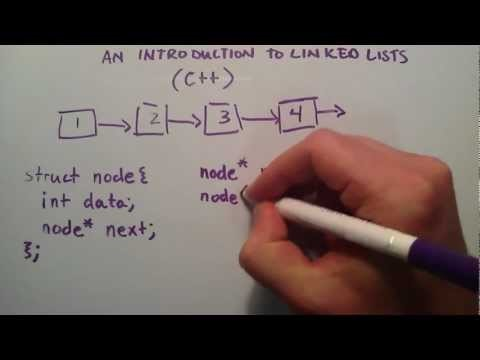 AN INTRODUCTION TO LINKED LISTS
(C++)
1 2 3 4
struct node{
int data;
node* next;
};
node*
node